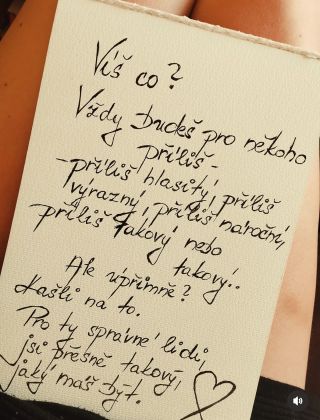 Víš co?
Vždy budeš pro někoho
příliš -
- příliš hlasitý, příliš
výrazný, příliš naročný,
příliš takový nebo
takový..
Ale upřímně?
Kašli na to.
Pro ty správné lidi,
jsi přesně takový,
jaký maš být.